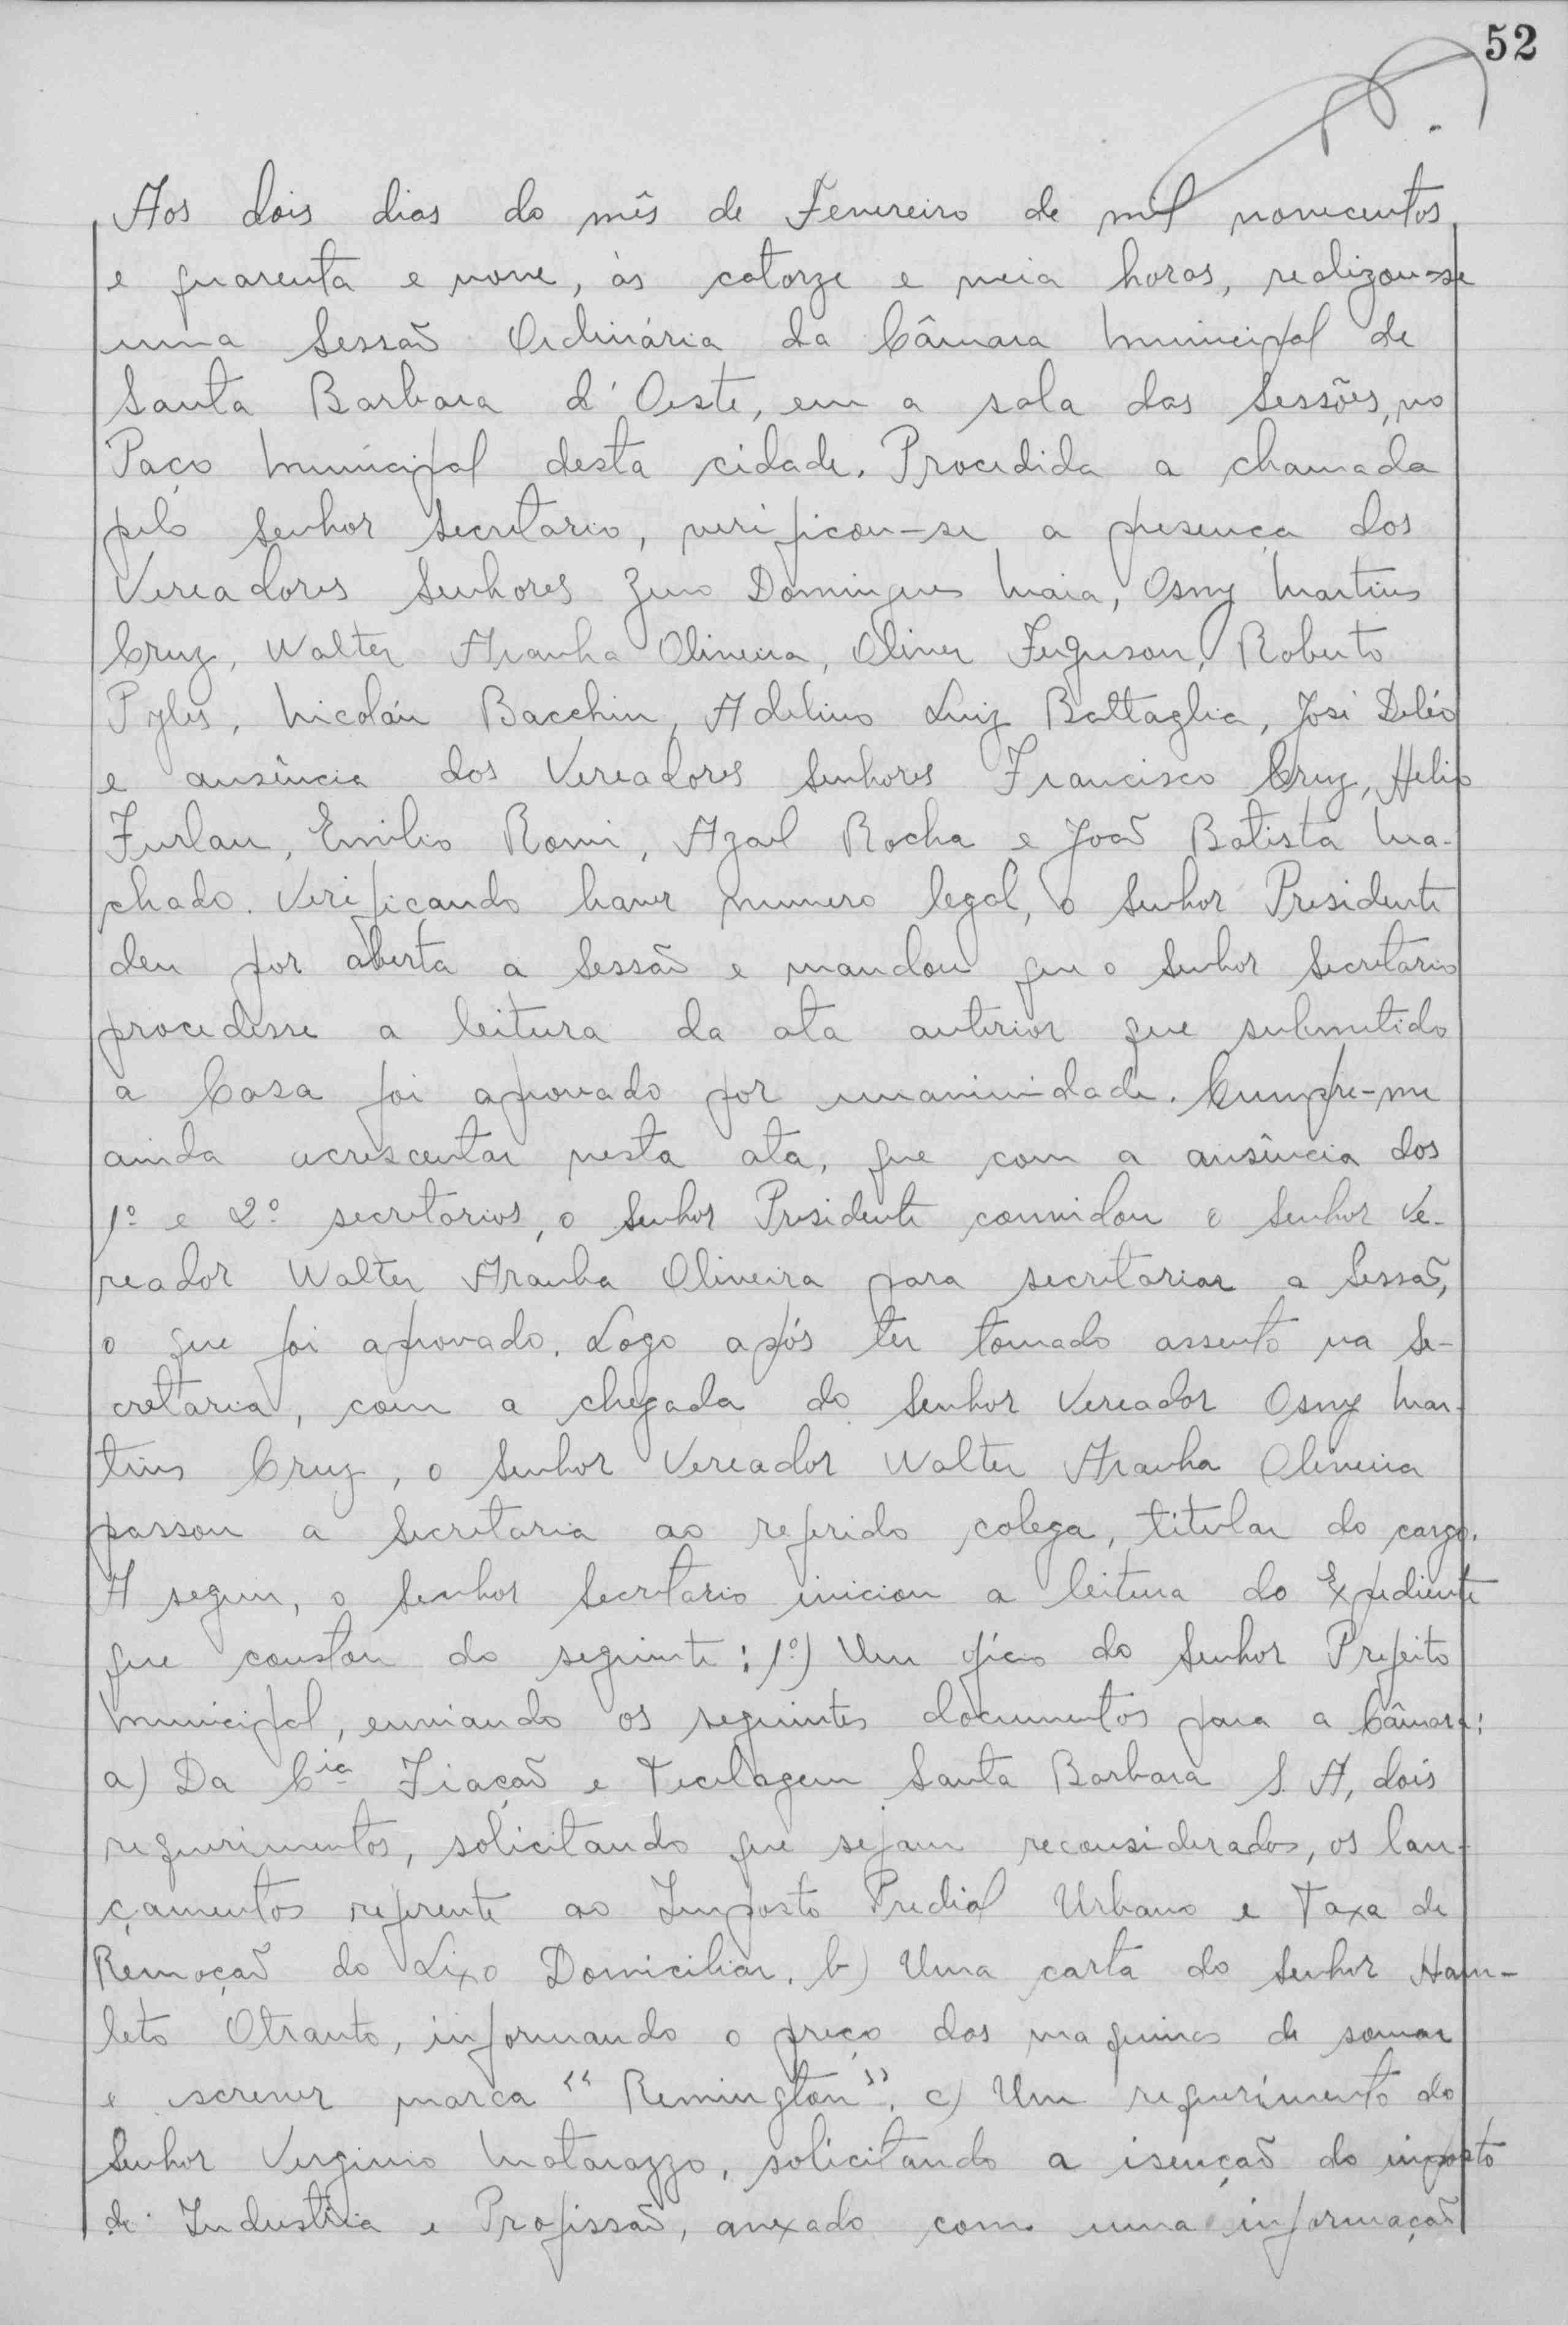 52
Aos dois dias do mês de Fevereiro de mil novecentos
e quarenta e nove, às catorze e meia horas, realizou-se
uma Sessão Ordinária da Câmara Municipal de
Santa Barbara d'Oeste, em a sala das Sessões, no
Paço Municipal desta cidade. Procedida a chamada
pelo Senhor Secretario, verificou-se a presença dos
Vereadores Senhores Zeno Domingues Maia, Osny Martins
Cruz, Walter Aranha Oliveira, Oliver Ferguson, Roberto
Pyles, Nicoláu Bacchin, Adelino Luiz Battaglia, José Deléo
e ausência dos Vereadores Senhores Francisco Cruz, Helio
Furlan, Emilio Romi, Azael Rocha e João Batista Ma-
chado. Verificando haver numero legal, o Senhor Presidente
deu por aberta a Sessão e mandou que o Senhor Secretario
procedesse a leitura da ata anterior que submetido
a Casa foi aprovado por unanimidade. Cumpre-me
ainda acrescentar nesta ata, que com a ausência dos
1º e 2º secretarios, o Senhor Presidente convidou o Senhor Ve-
reador Walter Aranha Oliveira para secretariar a Sessão,
o que foi aprovado. Logo após ter tomado assento na Se-
cretaria, com a chegada do Senhor Vereador Osny Mar-
tins Cruz, o Senhor Vereador Walter Aranha Oliveira
passou a Secretaria ao referido colega, titular do cargo.
A seguir, o Senhor Secretario iniciou a leitura do Expediente
que constou do seguinte: 1º) Um ofício do Senhor Prefeito
Municipal, enviando os seguintes documentos para a Câmara:
a) Da Cia Fiação e Tecelagem Santa Barbara S. A, dois
requerimentos, solicitando que sejam reconsiderados, os lan-
çamentos referente ao Imposto Predial Urbano e Taxa de
Remoção do Lixo Domiciliar. b) Uma carta do Senhor Ham-
leto Otranto, informando o preço das maquinas de somar
e screver marca "Remington". c) Um requerimento do
Senhor Verginio Matarazzo, solicitando a isenção do imposto
de Industria e Profissão, anexado com uma informação